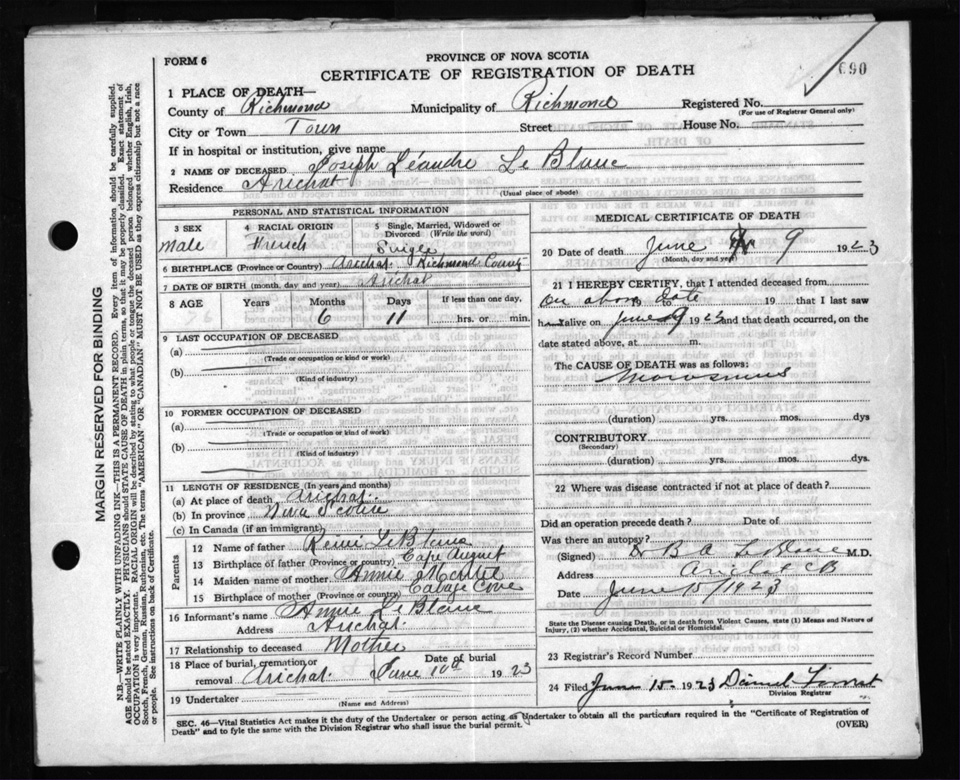 FORM 6
PROVINCE OF NOVA SCOTIA
CERTIFICATE OF REGISTRATION OF DEATH
690
1 PLACE OF DEATH—
County of Richmond Municipality of Richmond Registered No.
(For use of Registrar General only)
City or Town Town Street House No.
If in hospital or institution, give name
2 NAME OF DECEASED Joseph Léandre Le Blanc
Residence Arichat (Usual place of abode)
PERSONAL AND STATISTICAL INFORMATION
3 SEX 4 RACIAL ORIGIN 5 Single, Married, Widowed or Divorced (Write the word)
Male French Single
6 BIRTHPLACE (Province or Country) Arichat Richmond County
7 DATE OF BIRTH (month, day and year) Arichat
8 AGE Years Months Days If less than one day,
6 11 hrs. or min.
9 LAST OCCUPATION OF DECEASED
(a)
(Trade or occupation or kind of work)
(b)
(Kind of industry)
10 FORMER OCCUPATION OF DECEASED
(a)
(Trade or occupation or kind of work)
(b)
(Kind of industry)
11 LENGTH OF RESIDENCE (In years and months)
(a) At place of death Arichat.
(b) In province Nova Scotia
(c) In Canada (if an immigrant)
Parents
12 Name of father Remi LeBlanc
13 Birthplace of father (Province or country) Cape August
14 Maiden name of mother Annie
15 Birthplace of mother (Province or country) Cove
16 Informant's name Annie LeBlanc
Address Arichat
17 Relationship to deceased Mother
18 Place of burial, cremation or removal Arichat. Date of burial June 10th 1923
19 Undertaker
(Name and Address)
MEDICAL CERTIFICATE OF DEATH
20 Date of death June 9 1923
(Month, day and year)
21 I HEREBY CERTIFY, that I attended deceased from
on above date 19 that I last saw
h alive on June 9 1923 and that death occurred, on the
date stated above, at m.
The CAUSE OF DEATH was as follows:
(duration) yrs. mos. dys
CONTRIBUTORY
(Secondary)
(duration) yrs. mos. dys.
22 Where was disease contracted if not at place of death?
Did an operation precede death? Date of
Was there an autopsy?
(Signed) B A LeBlanc M.D.
Address Arichat CB
Date June 15/1923
State the Disease causing Death, or in death from Violent Causes, state (1) Means and Nature of Injury, (2) whether Accidental, Suicidal or Homicidal.
23 Registrar's Record Number
24 Filed June 15 - 1923 Daniel Forrest
Division Registrar
SEC. 46—Vital Statistics Act makes it the duty of the Undertaker or person acting as Undertaker to obtain all the particulars required in the "Certificate of Registration of
Death" and to fyle the same with the Division Registrar who shall issue the burial permit. (OVER)
MARGIN RESERVED FOR BINDING
N.B.—WRITE PLAINLY WITH UNFADING INK—THIS IS A PERMANENT RECORD. Every item of information should be carefully supplied.
AGE should be stated EXACTLY. PHYSICIANS should STATE CAUSE OF DEATH in plain terms, so that it may be properly classified. Exact statement of
OCCUPATION is very important. RACIAL ORIGIN will be described by stating to what people or tongue the deceased person belonged, whether English, Irish,
Scotch, French, German, Russian, Ruthenian, etc. The terms "AMERICAN" OR "CANADIAN" MUST NOT BE USED as they express citizenship but not a race
or people. See instructions on back of Certificate.